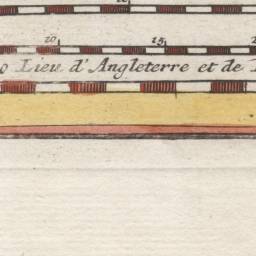 10 15
0 Lieu d'Angleterre et de